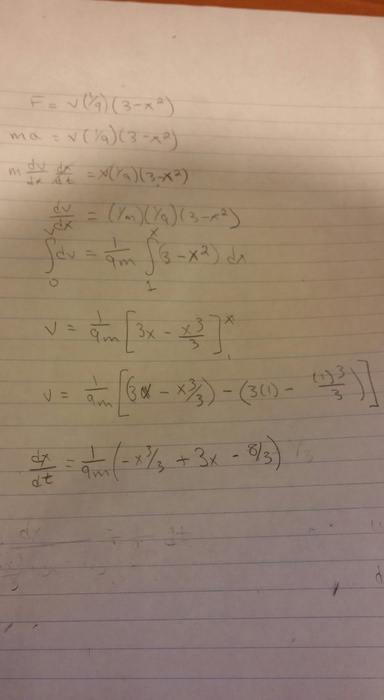 F = v(1/9)(3-x²)
ma = v(1/9)(3-x²)
m dv/dx dx/dt = v(1/9)(3-x²)
dv/dx = (1/m)(1/9)(3-x²)
∫₀ᵛ dv = 1/9m ∫₁ˣ (3-x²) dx
v = 1/9m [3x - x³/3]₁ˣ
v = 1/9m [(3x - x³/3) - (3(1) - (1)³/3)]
dx/dt = 1/9m (-x³/3 + 3x - 8/3)